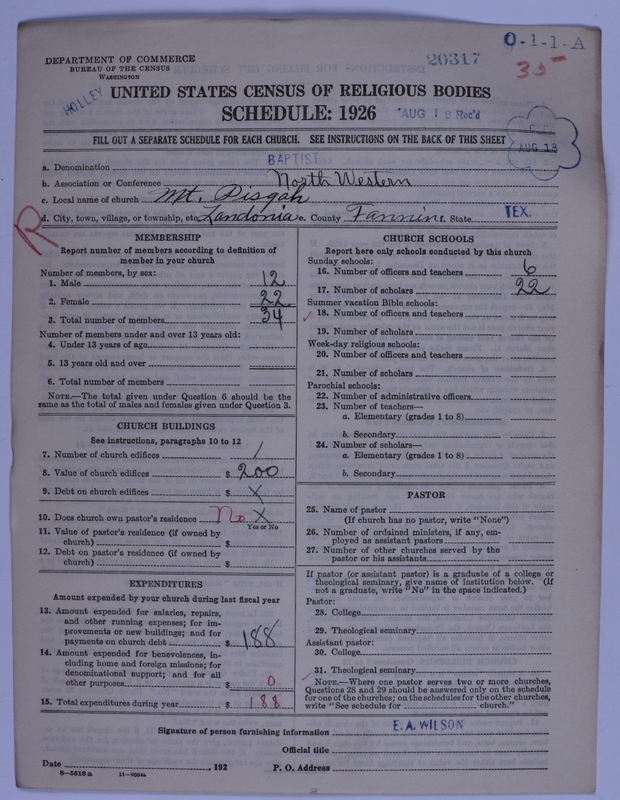 DEPARTMENT OF COMMERCE
BUREAU OF THE CENSUS
WASHINGTON
20317
0-1-1-A
35
HOLLEY
UNITED STATES CENSUS OF RELIGIOUS BODIES
SCHEDULE: 1926
AUG 18 Rec'd
FILL OUT A SEPARATE SCHEDULE FOR EACH CHURCH. SEE INSTRUCTIONS ON THE BACK OF THIS SHEET
AUG 18
a. Denomination BAPTIST
b. Association or Conference North Western
c. Local name of church Mt. Pisgah
d. City, town, village, or township, etc. Landonia e. County Fannin f. State TEX.
R
MEMBERSHIP
Report number of members according to definition of
member in your church
Number of members, by sex:
1. Male 12
2. Female 22
3. Total number of members 34
Number of members under and over 13 years old:
4. Under 13 years of age
5. 13 years old and over
6. Total number of members
NOTE.—The total given under Question 6 should be the
same as the total of males and females given under Question 3.
CHURCH BUILDINGS
See instructions, paragraphs 10 to 12
7. Number of church edifices 1
8. Value of church edifices $ 200
9. Debt on church edifices $ X
10. Does church own pastor's residence No X
Yes or No
11. Value of pastor's residence (if owned by
church) $
12. Debt on pastor's residence (if owned by
church) $
EXPENDITURES
Amount expended by your church during last fiscal year
13. Amount expended for salaries, repairs,
and other running expenses; for im-
provements or new buildings; and for
payments on church debt $ 188
14. Amount expended for benevolences, in-
cluding home and foreign missions; for
denominational support; and for all
other purposes $ 0
15. Total expenditures during year $ 188
CHURCH SCHOOLS
Report here only schools conducted by this church
Sunday schools:
16. Number of officers and teachers 6
17. Number of scholars 22
Summer vacation Bible schools:
18. Number of officers and teachers
19. Number of scholars
Week-day religious schools:
20. Number of officers and teachers
21. Number of scholars
Parochial schools:
22. Number of administrative officers
23. Number of teachers—
a. Elementary (grades 1 to 8)
b. Secondary
24. Number of scholars—
a. Elementary (grades 1 to 8)
b. Secondary
PASTOR
25. Name of pastor
(If church has no pastor, write "None")
26. Number of ordained ministers, if any, em-
ployed as assistant pastors
27. Number of other churches served by the
pastor or his assistants
If pastor (or assistant pastor) is a graduate of a college or
theological seminary, give name of institution below. (If
not a graduate, write "No" in the space indicated.)
Pastor:
28. College
29. Theological seminary
Assistant pastor:
30. College
31. Theological seminary
NOTE.—Where one pastor serves two or more churches,
Questions 28 and 29 should be answered only on the schedule
for one of the churches; on the schedules for the other churches,
write "See schedule for church."
Signature of person furnishing information E. A. WILSON
Official title
Date , 192 P. O. Address
8—5519 a 11—9034a